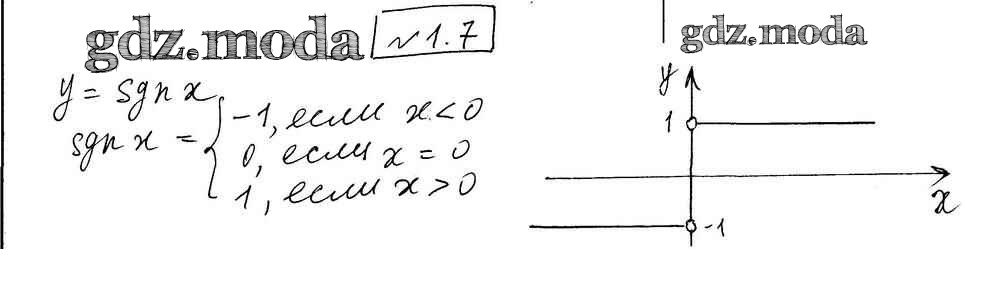 gdz.moda №1.7
y = sgn x
sgn x = { -1, если x < 0
0, если x = 0
1, если x > 0
gdz.moda
y
1
x
-1